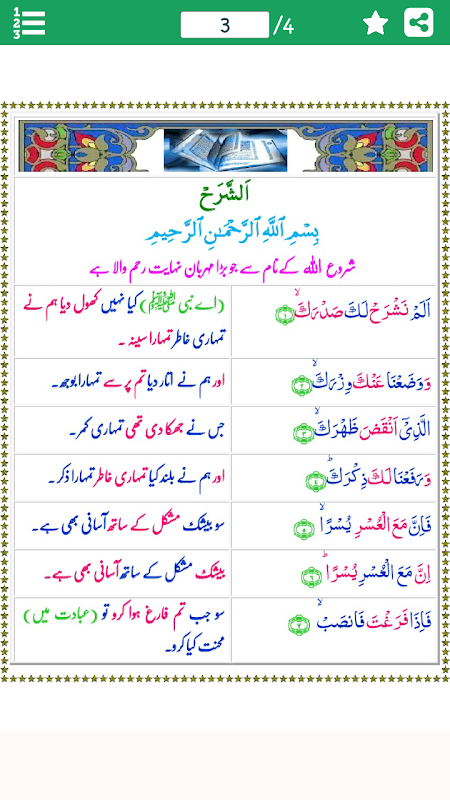 1
2
3
3
/4
اَلشَّرَحْ
بِسْمِ اللّٰهِ الرَّحْمٰنِ الرَّحِيْمِ
شروع اللہ کے نام سے جو بڑا مہربان نہایت رحم والا ہے
اَلَمْ نَشْرَحْ لَكَ صَدْرَكَۙ ۝۱
(اے نبی ﷺ) کیا نہیں کھول دیا ہم نے
تمہاری خاطر تمہارا سینہ ۔
وَوَضَعْنَا عَنْكَ وِزْرَكَۙ ۝۲
اور ہم نے اتار دیا تم پر سے تمہارا بوجھ۔
الَّذِيْٓ اَنْقَضَ ظَهْرَكَۙ ۝۳
جس نے جھکا دی تھی تمہاری کمر۔
وَرَفَعْنَا لَكَ ذِكْرَكَؕ ۝۴
اور ہم نے بلند کیا تمہاری خاطر تمہارا ذکر۔
فَاِنَّ مَعَ الْعُسْرِ يُسْرًاۙ ۝۵
سو بیشک مشکل کے ساتھ آسانی بھی ہے۔
اِنَّ مَعَ الْعُسْرِ يُسْرًاؕ ۝۶
بیشک مشکل کے ساتھ آسانی بھی ہے۔
فَاِذَا فَرَغْتَ فَانصَبْۙ ۝۷
سو جب تم فارغ ہوا کرو تو (عبادت میں)
محنت کیا کرو۔